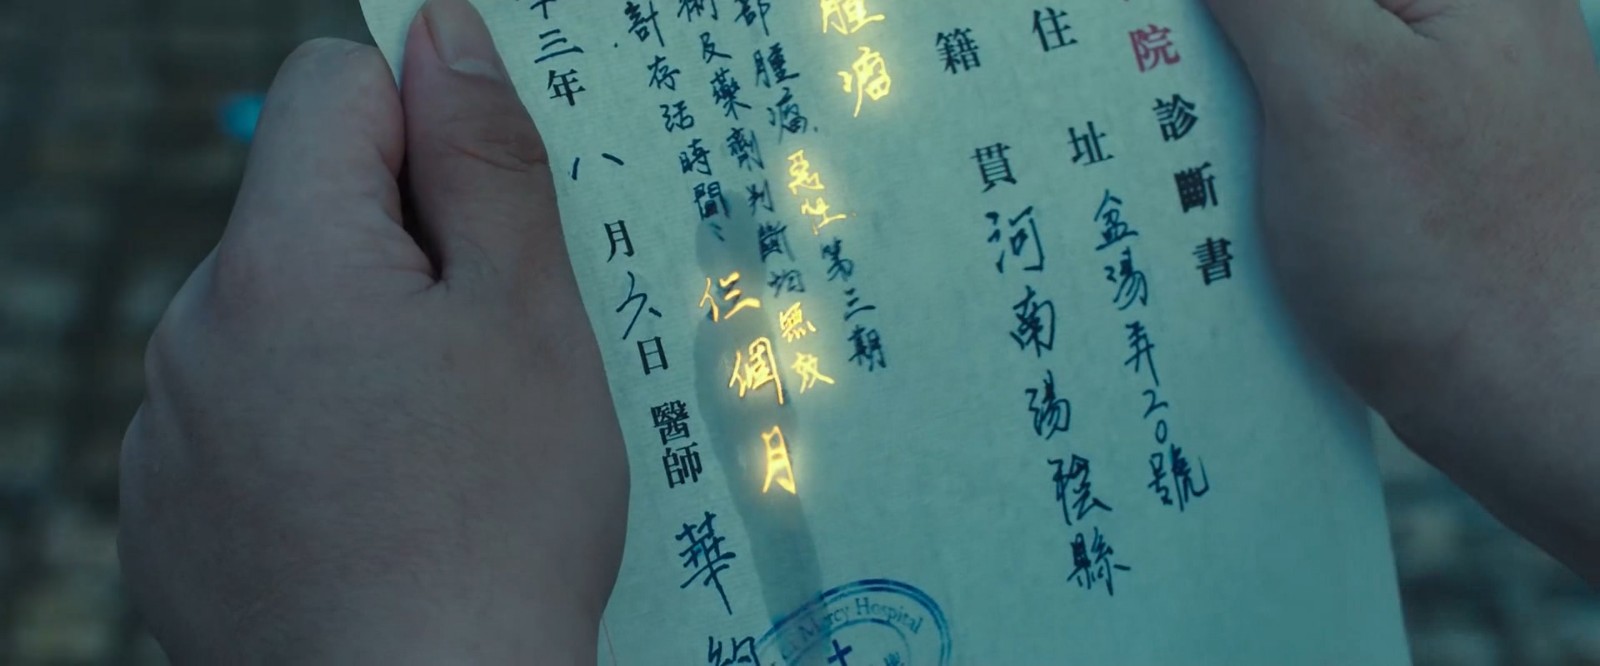 院診斷書
住址 盆湯弄20號
籍貫 河南湯陰縣
腫瘤
部腫瘤惡性第三期
術及藥劑判斷均無效
計存活時間：仨個月
十三年八月六日 醫師 華
Mercy Hospital